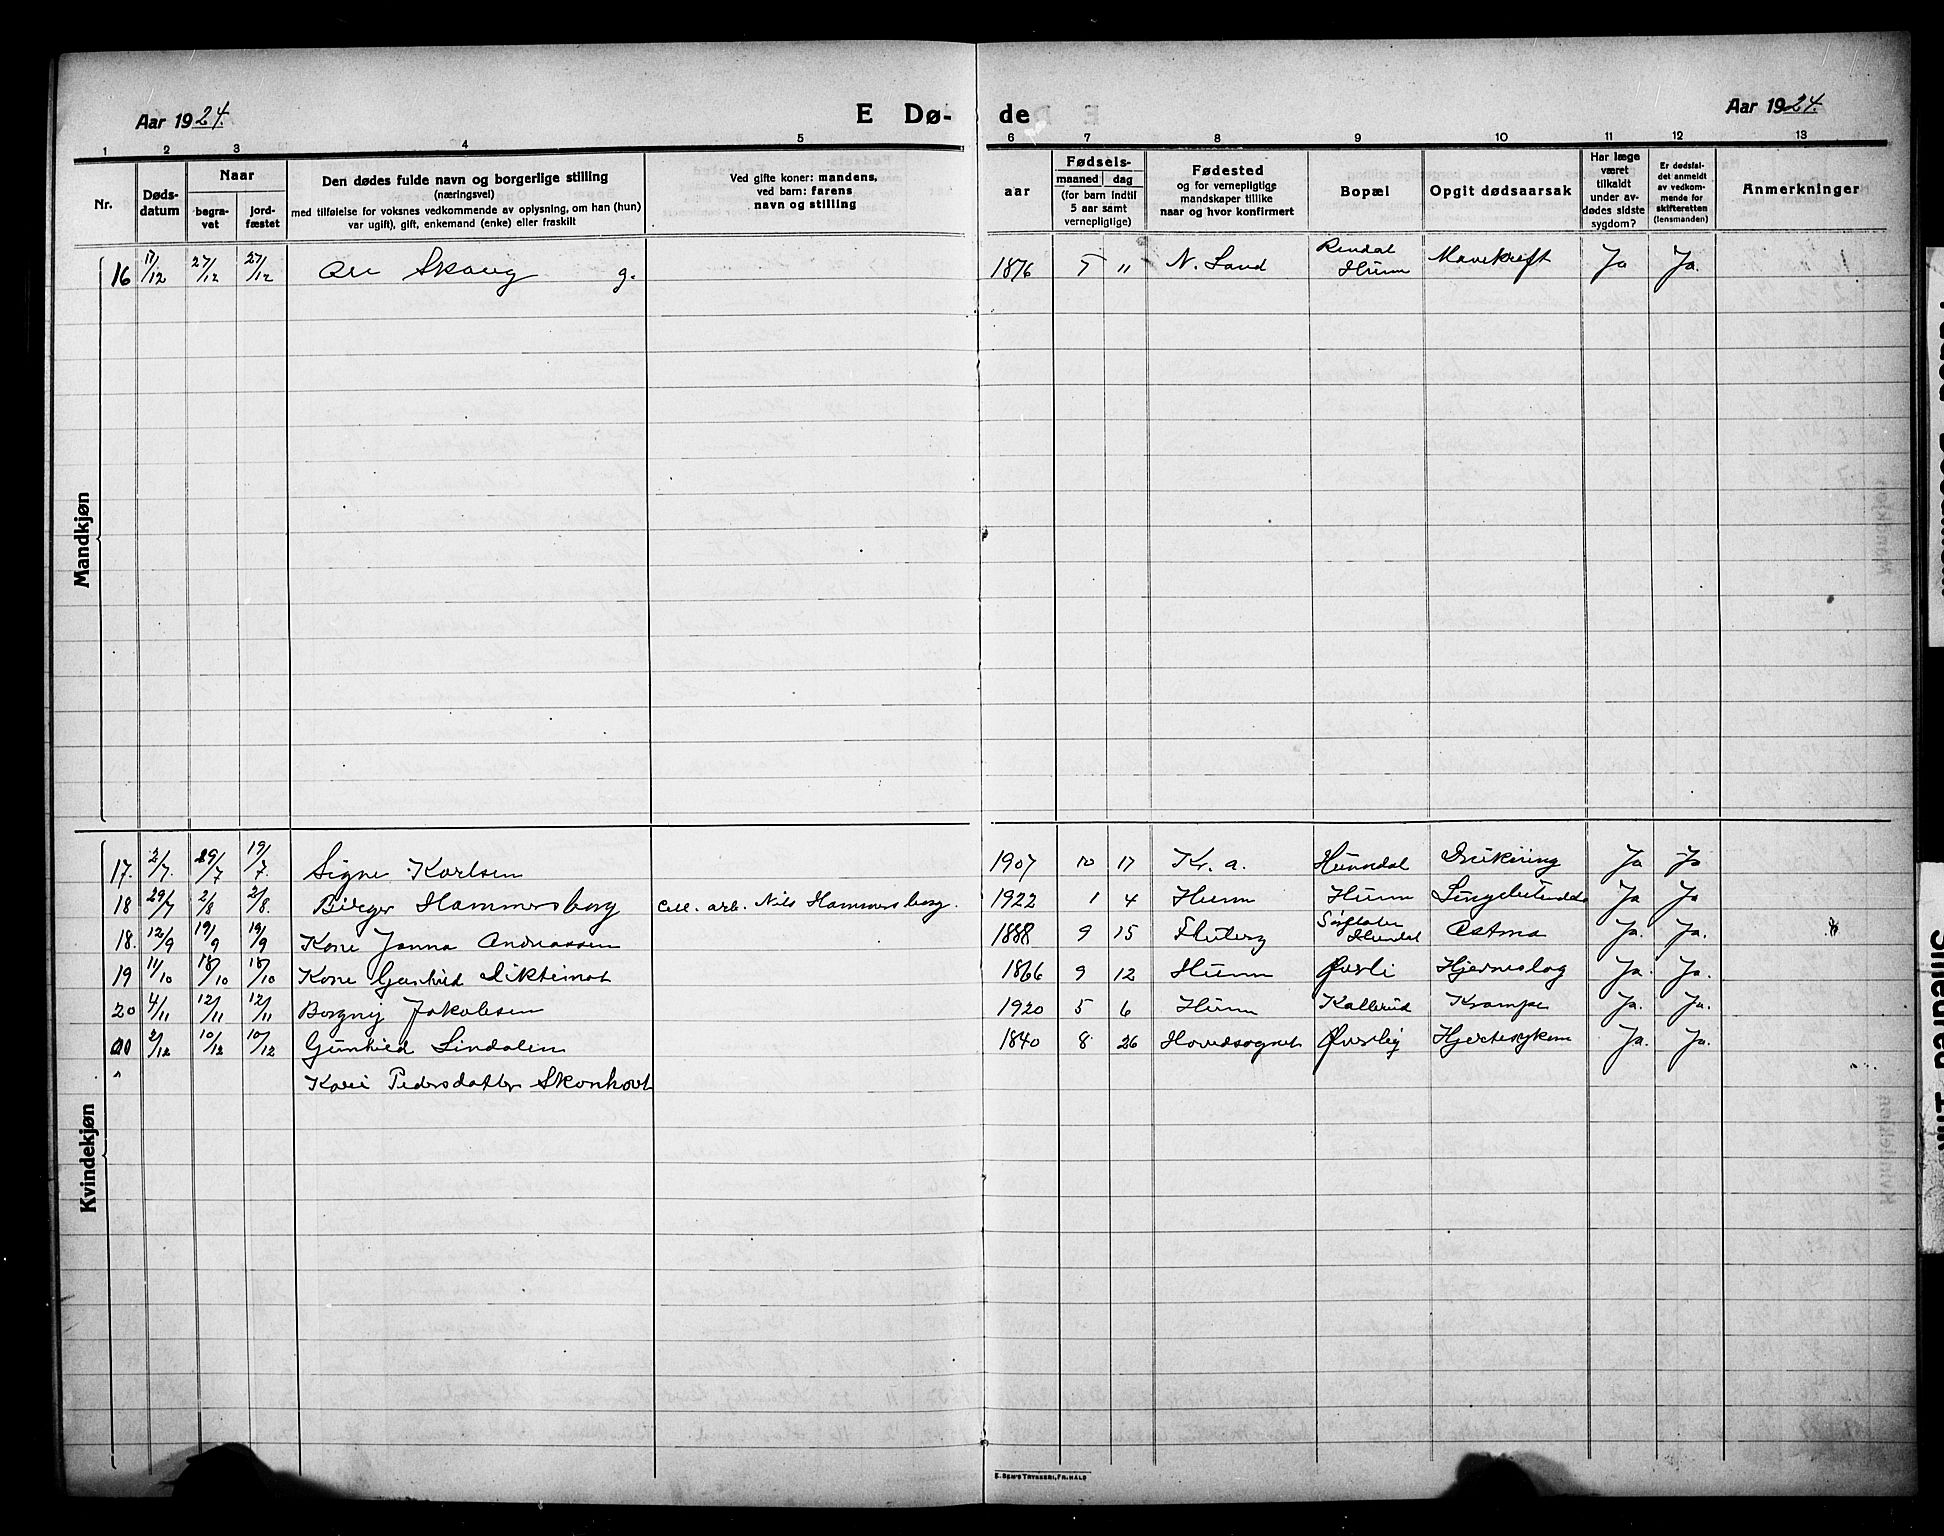 Aar 1924.
E Dø-
de
Aar 1924.
1 2 3 4 5 6 7 8 9 10 11 12 13
Nr.
Døds-
datum
Naar
begra-
vet
jord-
fæstet
Den dødes fulde navn og borgerlige stilling
(næringsvei)
med tilføielse for voksnes vedkommende av oplysning, om han (hun)
var ugift, gift, enkemand (enke) eller fraskilt
Ved gifte koner: mandens,
ved barn: farens
navn og stilling
aar
Fødsels-
maaned dag
(for barn indtil
5 aar samt
vernepligtige)
Fødested
og for vernepligtige
mandskaper tillike
naar og hvor konfirmert
Bopæl
Opgit dødsaarsak
Har læge
været
tilkaldt
under av-
dødes sidste
sygdom?
Er dødsfal-
det anmeldt
av vedkom-
mende for
skifteretten
(lensmanden)
Anmerkninger
Mandkjøn
16 17/12 27/12 27/12 Skaug g. 1876 5 11 N. Land Hunn Mavekræft Ja Ja.
Kvindekjøn
17. 2/7. 29/7 19/7. Signe Karlsen 1907 10 17 Kr. a. Hunndal Ja Ja
18 29/7 2/8 2/8. Birger Hammersborg Cell. arb. Nils Hammersborg. 1922 1 4 Hunn Hunn Ja Ja
18. 12/9 19/9 19/9 Kone Janna Andreassen 1888 9 15 Fluberg Astma Ja. Ja.
19 11/10 18/10 18/10 Kone 1866 9 12 Hunn Øverli Hjerneslag Ja. Ja.
20 4/11 12/11 12/11 Borgny Jakobsen 1920 5 6 Hunn Kallerud Krampe Ja. Ja.
2/12 10/12 10/12 Gunhild Lindalen 1840 8 26 Hovedsognet Øverby Hjertesykdom Ja. Ja.
" Kari Pedersdatter Skonhovt
E. SEM'S TRYKKERI, FR.HALD